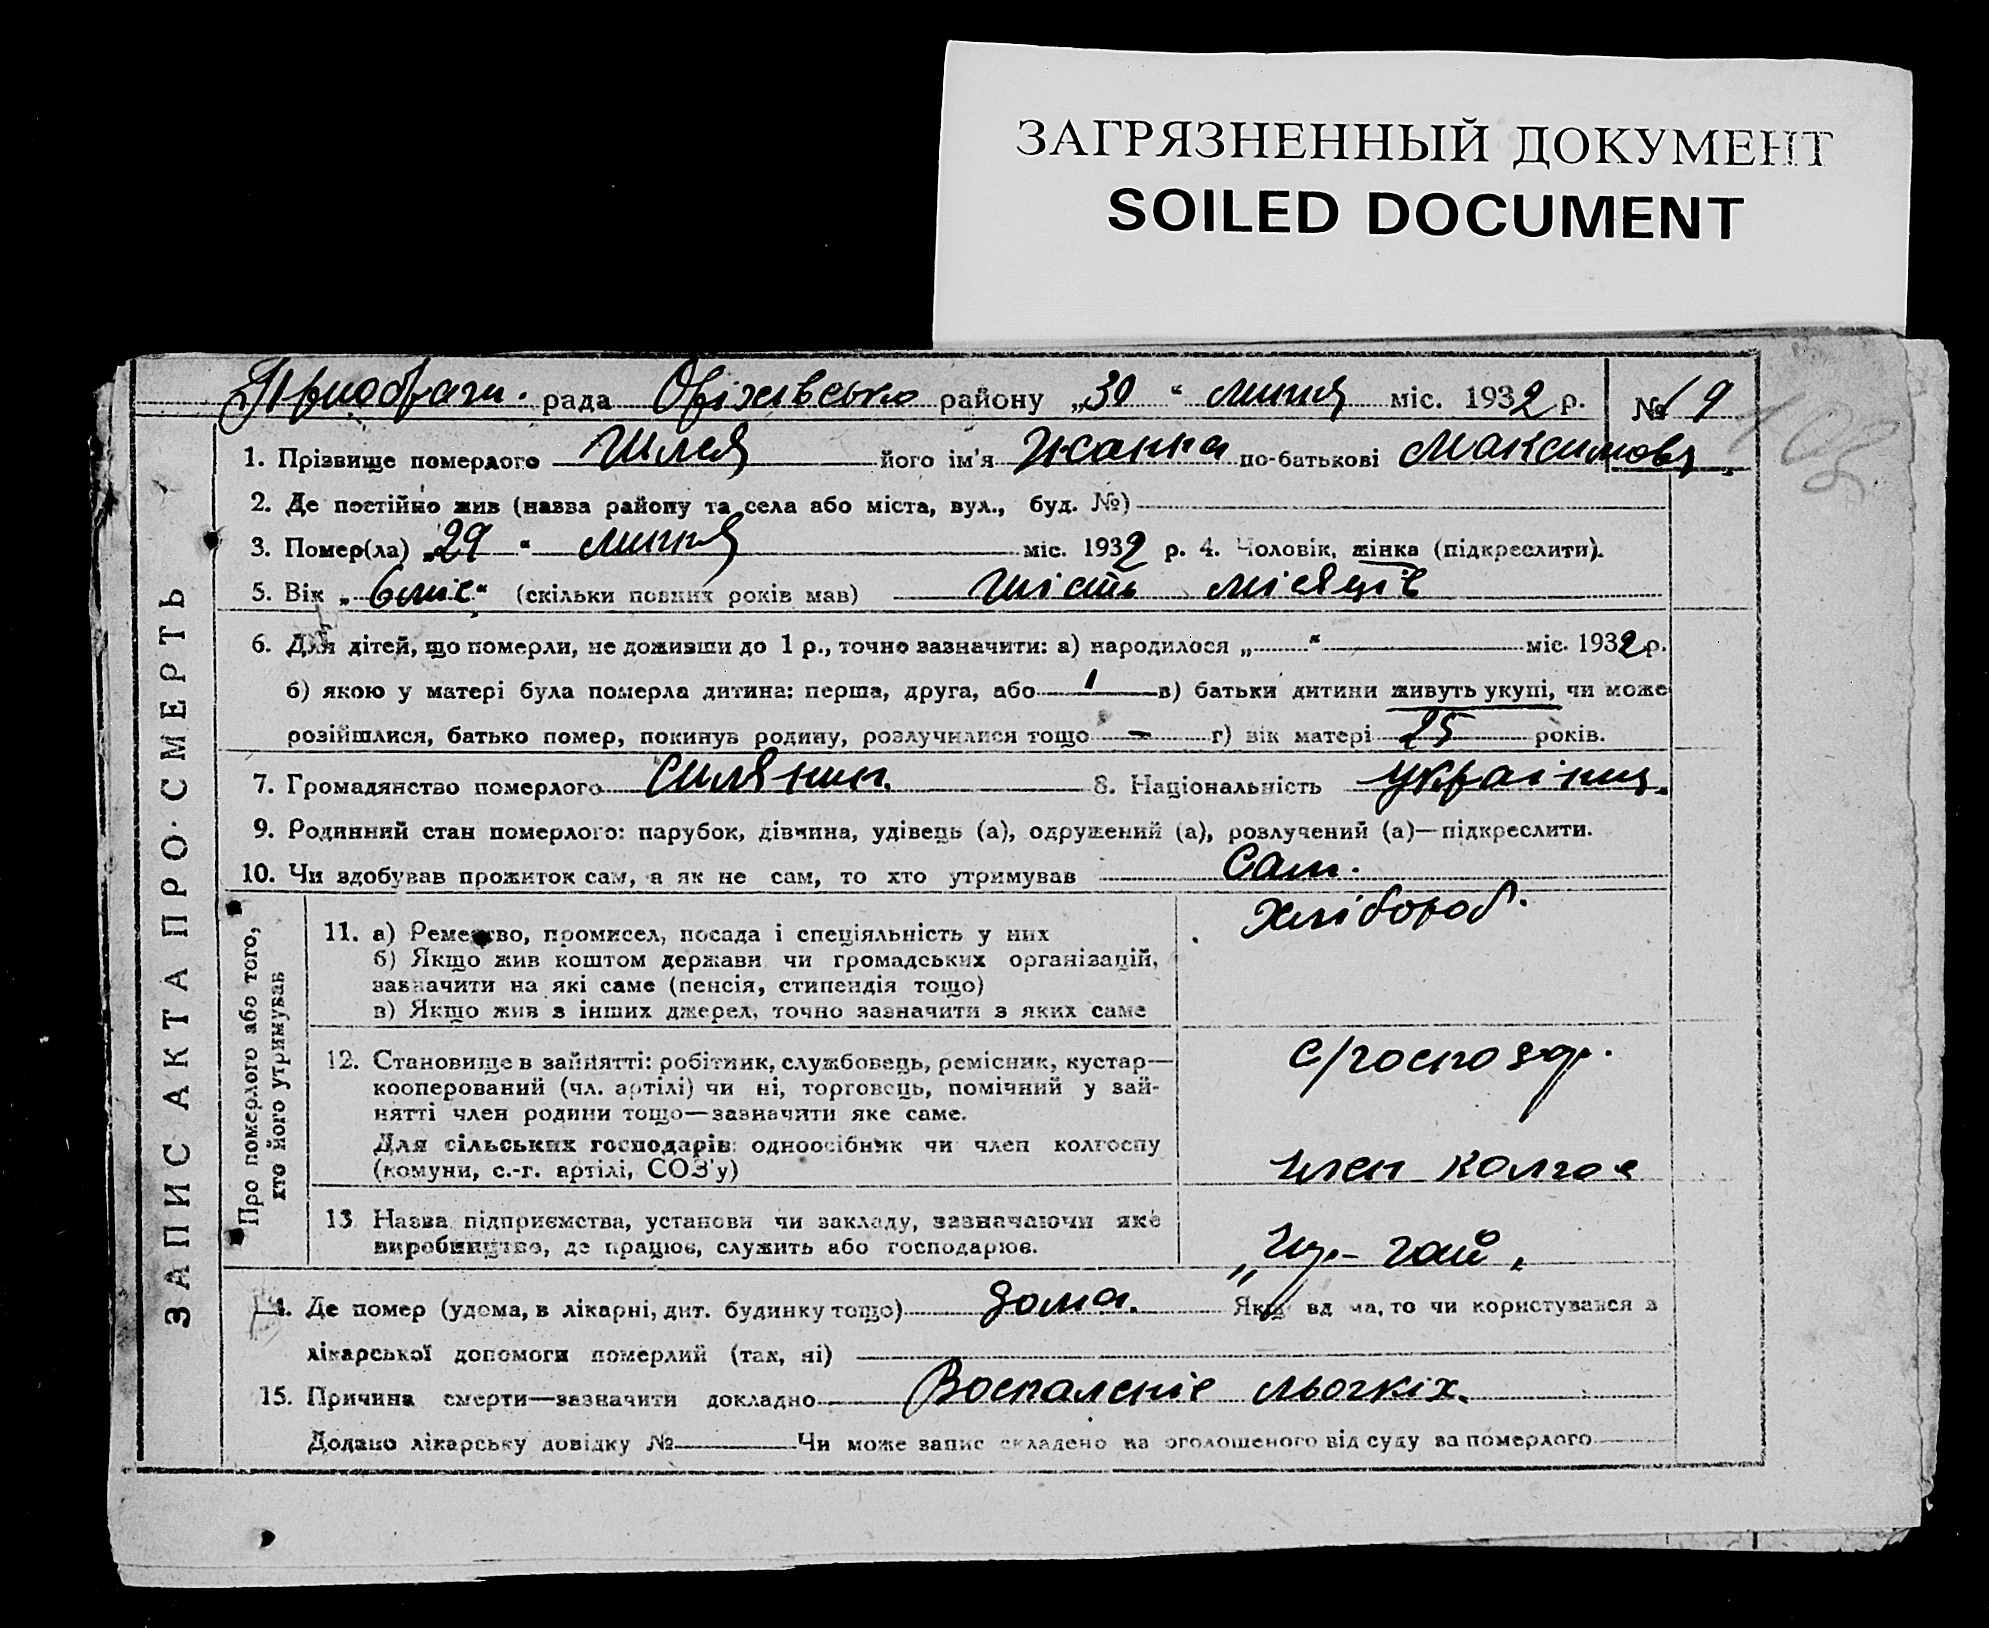 ЗАГРЯЗНЕННЫЙ ДОКУМЕНТ
SOILED DOCUMENT
рада Оріхівсько району „30 “ липня міс. 1932 р. № 19
ЗАПИС АКТА ПРО СМЕРТЬ
1. Прізвище померлого Шлея його ім'я Жанна по-батькові Максимовя
2. Де постійно жив (назва району та села або міста, вул., буд. №)
3. Помер(ла) „29 “ липня міс. 1932 р. 4. Чоловік, жінка (підкреслити).
5. Вік „ 6 міс “ (скільки повних років мав) шість місяців
6. Для дітей, що померли, не доживши до 1 р., точно зазначити: а) народилося „ “ міс. 1932 р.
б) якою у матері була померла дитина: перша, друга, або 1 в) батьки дитини живуть укупі, чи може
розійшлися, батько помер, покинув родину, розлучилися тощо – г) вік матері 25 років.
7. Громадянство померлого Силянин. 8. Національність Україниця.
9. Родинний стан померлого: парубок, дівчина, удівець (а), одружений (а), розлучений (а)—підкреслити.
10. Чи здобував прожиток сам, а як не сам, то хто утримував Сам.
Про померлого або того,
хто його утримував
11. а) Ремество, промисел, посада і спеціяльність у них Хлібороб.
б) Якщо жив коштом держави чи громадських організацій,
зазначити на які саме (пенсія, стипендія тощо)
в) Якщо жив з інших джерел, точно зазначити з яких саме
12. Становище в зайнятті: робітник, службовець, ремісник, кустар— с/господар.
кооперований (чл. артілі) чи ні, торговець, помічний у зай-
нятті член родини тощо—зазначити яке саме.
Для сільських господарів: одноосібник чи член колгоспу
(комуни, с.-г. артілі, СОЗ'у) член колгос
13 Назва підприємства, установи чи закладу, зазначаючи яке
виробництво, де працює, служить або господарює.
14. Де помер (удома, в лікарні, дит. будинку тощо) дома. Якщо вдома, то чи користувався з
лікарської допомоги померлий (так, ні)
15. Причина смерти—зазначити докладно Воспаленіе льогкіх.
Додано лікарську довідку № Чи може запис складено на оголошеного від суду за померлого